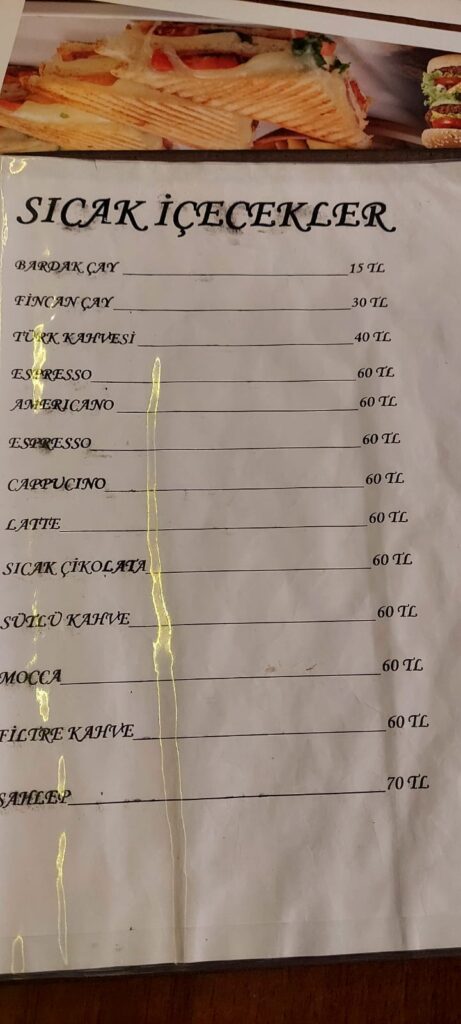 SICAK İÇECEKLER
BARDAK ÇAY 15 TL
FİNCAN ÇAY 30 TL
TÜRK KAHVESİ 40 TL
ESPRESSO 60 TL
AMERICANO 60 TL
ESPRESSO 60 TL
CAPPUCINO 60 TL
LATTE 60 TL
SICAK ÇİKOLATA 60 TL
SÜTLÜ KAHVE 60 TL
MOCCA 60 TL
FİLTRE KAHVE 60 TL
SAHLEP 70 TL